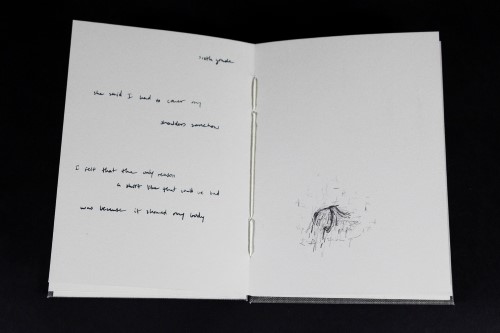 ninth grade
she said I had to cover my
shoulders somehow
I felt that the only reason
a shirt like that would be bad
was because it showed my body